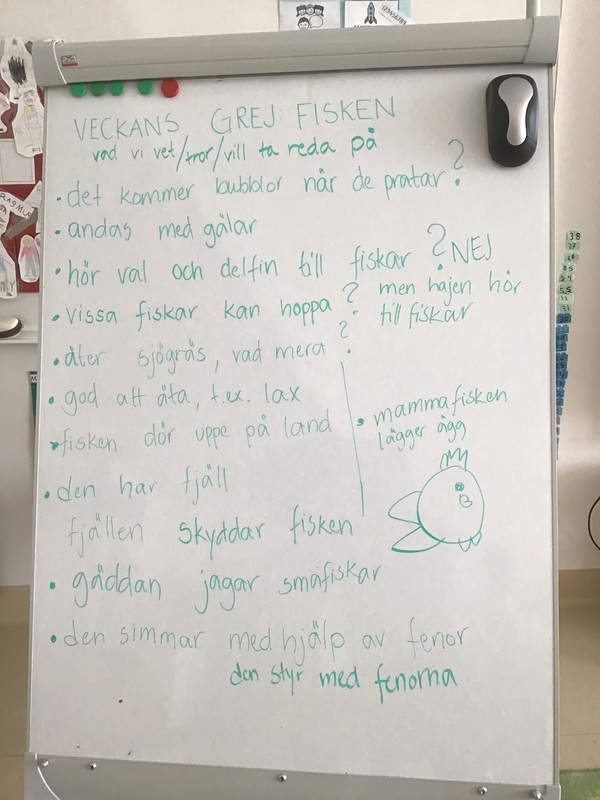 VECKANS GREJ: FISKEN
vad vi vet/tror/vill ta reda på
• det kommer bubblor när de pratar?
• andas med gälar
• hör val och delfin till fiskar? NEJ
men hajen hör
till fiskar
• vissa fiskar kan hoppa?
• äter sjögräs, vad mera?
• god att äta, t.ex. lax
• fisken dör uppe på land
• mammafisken
lägger ägg
• den har fjäll
fjällen skyddar fisken
• gäddan jagar småfiskar
• den simmar med hjälp av fenor
den styr med fenorna